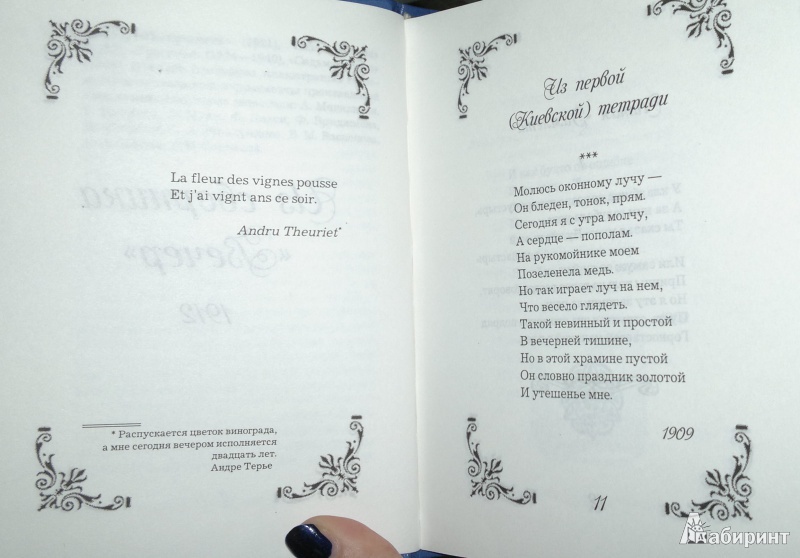 La fleur des vignes pousse
Et j'ai vignt ans ce soir.
Andru Theuriet*
* Распускается цветок винограда,
а мне сегодня вечером исполняется
двадцать лет.
Андре Терье
Из первой
(Киевской) тетради
***
Молюсь оконному лучу —
Он бледен, тонок, прям.
Сегодня я с утра молчу,
А сердце — пополам.
На рукомойнике моем
Позеленела медь.
Но так играет луч на нем,
Что весело глядеть.
Такой невинный и простой
В вечерней тишине,
Но в этой храмине пустой
Он словно праздник золотой
И утешенье мне.
1909
11
Лабиринт